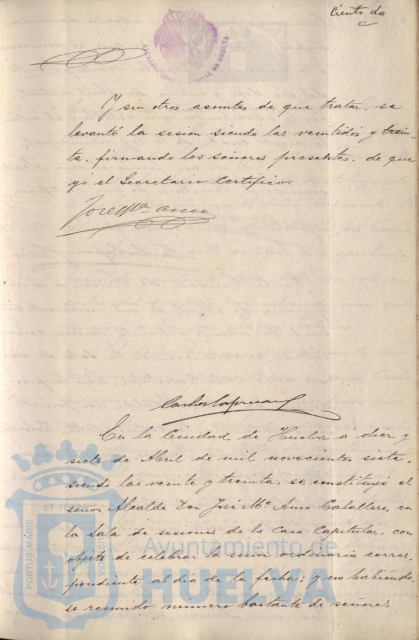 Ciento dos
Y sin otros asuntos de que tratar, se
levantó la sesión siendo las veintidos y trein-
ta, firmando los señores presentes, de que
yo el Secretario Certifico.
José Mª Amo
En la Ciudad de Huelva á diez y
siete de Abril de mil novecientos siete,
siendo las veinte y treinta, se constituyó el
Señor Alcalde Don José Mª Amo Caballero, en
la Sala de sesiones de la Casa Capitular, con
objeto de celebrar la sesión ordinaria corres-
pondiente al día de la fecha; y no habiendo-
se reunido número bastante de señores
PORTUS MARIS
ET TERRAE
Ayuntamiento de
HUELVA